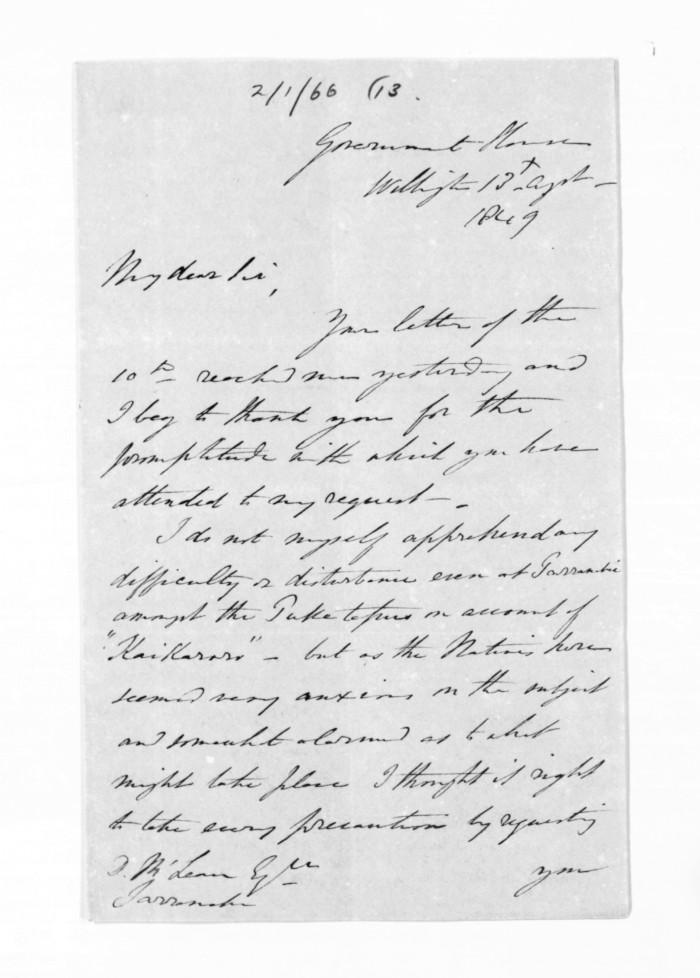 2/1/66 (13.
Government House
Wellington 13th Augst
1849
My dear Sir,
Your letter of the
10th reached me yesterday and
I beg to thank you for the
promptitude with which you have
attended to my request.
I do not myself apprehend any
difficulty or disturbance even at Tarranaki
amongst the on account of
"Kaikararo" - but as the Natives here
seemed very anxious on the subject
and somewhat alarmed as to what
might take place I thought it right
to take every precaution by requesting
D. McLean Esqre you
Tarranaki